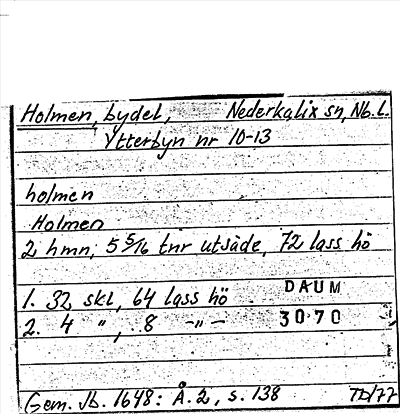 Holmen, bydel, Nederkalix sn, Nb. l.
Ytterbyn nr 10-13
holmen
Holmen
2 hmn, 5 5/16 tnr utsäde, 72 lass hö
DAUM
1. 32 skl, 64 lass hö
2. 4 ", 8 -"-
30·70
Gem. Jb. 1648: Å. 2, s. 138
TD/77